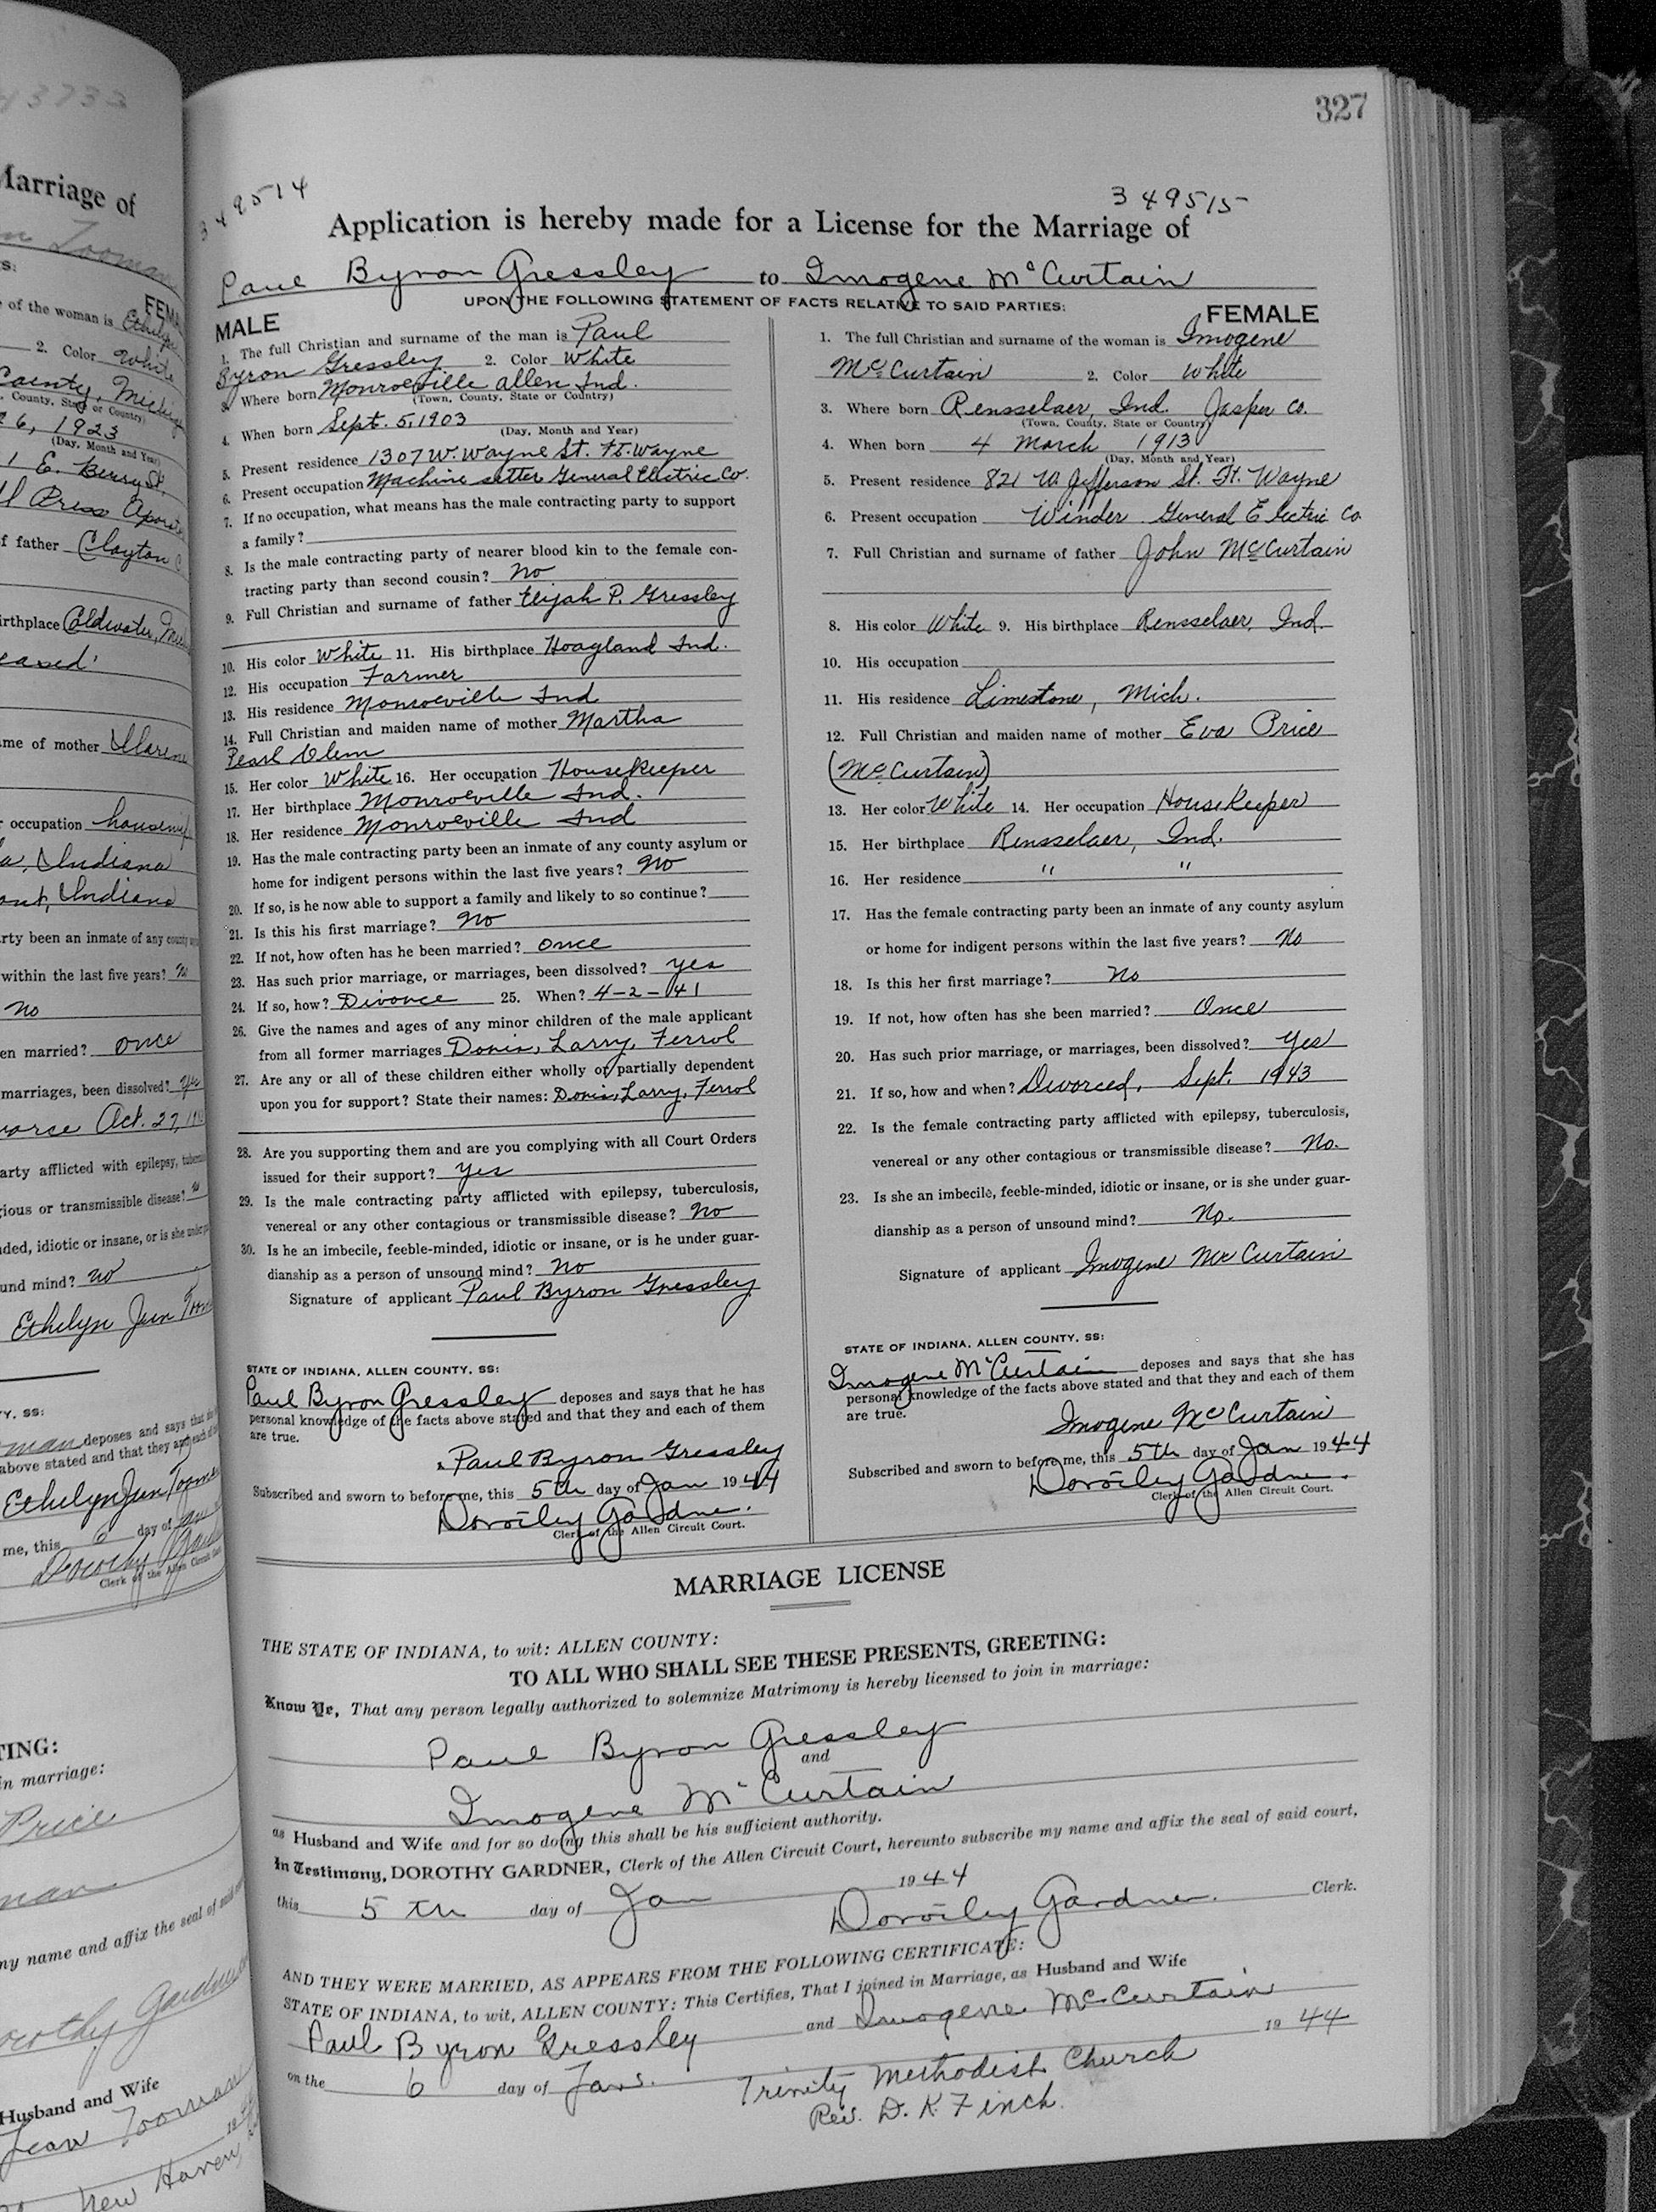 43733
Marriage of
Tooman
s:
FEMA
e of the woman is Ethelyn
2. Color White
County, Michigan
, County, State or Country)
6, 1923
(Day, Month and Year)
1 E. Berry St.
ll Press Opera
f father Clayton C
irthplace Coldwater, Mich
eased
me of mother
r occupation housewife
a, Indiana
ont, Indiana
rty been an inmate of any county
within the last five years? No
No
en married? once
marriages, been dissolved? Yes
vorce Oct. 27, 19
arty afflicted with epilepsy, tuberculo
gious or transmissible disease?
ded, idiotic or insane, or is she under gu
und mind? No
Ethelyn Jean Toom
Y, SS:
man deposes and says that she
above stated and that they and each of
Ethelyn Jean Tooman
me, this 6 day of Jan
Dorothy Gard
Clerk of the Allen Circuit Court
TING:
in marriage:
Price
man
my name and affix the seal of said
orothy Gardner
Husband and Wife
Jean Tooman
New Haven,
327
349514
349515
Application is hereby made for a License for the Marriage of
Paul Byron Gressley to Imogene McCurtain
UPON THE FOLLOWING STATEMENT OF FACTS RELATIVE TO SAID PARTIES:
MALE
1. The full Christian and surname of the man is Paul
Byron Gressley 2. Color White
3. Where born Monroeville Allen Ind.
(Town, County, State or Country)
4. When born Sept. 5, 1903
(Day, Month and Year)
5. Present residence 1307 W. Wayne St. Ft. Wayne
6. Present occupation Machine setter General Electric Co.
7. If no occupation, what means has the male contracting party to support
a family?
8. Is the male contracting party of nearer blood kin to the female con-
tracting party than second cousin? No
9. Full Christian and surname of father Elijah P. Gressley
10. His color White 11. His birthplace Hoagland Ind.
12. His occupation Farmer
13. His residence Monroeville Ind
14. Full Christian and maiden name of mother Martha
Pearl Clem
15. Her color White 16. Her occupation Housekeeper
17. Her birthplace Monroeville Ind.
18. Her residence Monroeville Ind
19. Has the male contracting party been an inmate of any county asylum or
home for indigent persons within the last five years? No
20. If so, is he now able to support a family and likely to so continue?
21. Is this his first marriage? No
22. If not, how often has he been married? once
23. Has such prior marriage, or marriages, been dissolved? yes
24. If so, how? Divorce 25. When? 4-2-41
26. Give the names and ages of any minor children of the male applicant
from all former marriages Donis, Larry, Ferrol
27. Are any or all of these children either wholly or partially dependent
upon you for support? State their names: Donis, Larry, Ferrol
28. Are you supporting them and are you complying with all Court Orders
issued for their support? yes
29. Is the male contracting party afflicted with epilepsy, tuberculosis,
venereal or any other contagious or transmissible disease? No
30. Is he an imbecile, feeble-minded, idiotic or insane, or is he under guar-
dianship as a person of unsound mind? No
Signature of applicant Paul Byron Gressley
STATE OF INDIANA, ALLEN COUNTY, SS:
Paul Byron Gressley deposes and says that he has
personal knowledge of the facts above stated and that they and each of them
are true.
Paul Byron Gressley
Subscribed and sworn to before me, this 5th day of Jan 1944
Dorothy Gardner
Clerk of the Allen Circuit Court.
FEMALE
1. The full Christian and surname of the woman is Imogene
McCurtain 2. Color White
3. Where born Rensselaer, Ind. Jasper Co.
(Town, County, State or Country)
4. When born 4 March 1913
(Day, Month and Year)
5. Present residence 821 W Jefferson St. Ft. Wayne
6. Present occupation Winder General Electric Co
7. Full Christian and surname of father John McCurtain
8. His color White 9. His birthplace Rensselaer, Ind.
10. His occupation
11. His residence Limestone, Mich.
12. Full Christian and maiden name of mother Eva Price
(McCurtain)
13. Her color White 14. Her occupation Housekeeper
15. Her birthplace Rensselaer, Ind.
16. Her residence " "
17. Has the female contracting party been an inmate of any county asylum
or home for indigent persons within the last five years? No
18. Is this her first marriage? No
19. If not, how often has she been married? Once
20. Has such prior marriage, or marriages, been dissolved? Yes
21. If so, how and when? Divorced, Sept. 1943
22. Is the female contracting party afflicted with epilepsy, tuberculosis,
venereal or any other contagious or transmissible disease? No.
23. Is she an imbecile, feeble-minded, idiotic or insane, or is she under guar-
dianship as a person of unsound mind? No.
Signature of applicant Imogene McCurtain
STATE OF INDIANA, ALLEN COUNTY, SS:
Imogene McCurtain deposes and says that she has
personal knowledge of the facts above stated and that they and each of them
are true.
Imogene McCurtain
Subscribed and sworn to before me, this 5th day of Jan 1944
Dorothy Gardner.
Clerk of the Allen Circuit Court.
MARRIAGE LICENSE
THE STATE OF INDIANA, to wit: ALLEN COUNTY:
TO ALL WHO SHALL SEE THESE PRESENTS, GREETING:
Know Ye, That any person legally authorized to solemnize Matrimony is hereby licensed to join in marriage:
Paul Byron Gressley
and
Imogene McCurtain
as Husband and Wife and for so doing this shall be his sufficient authority.
In Testimony, DOROTHY GARDNER, Clerk of the Allen Circuit Court, hereunto subscribe my name and affix the seal of said court,
this 5th day of Jan 1944
Dorothy Gardner. Clerk.
AND THEY WERE MARRIED, AS APPEARS FROM THE FOLLOWING CERTIFICATE:
STATE OF INDIANA, to wit, ALLEN COUNTY: This Certifies, That I joined in Marriage, as Husband and Wife
Paul Byron Gressley and Imogene McCurtain
on the 6 day of Jan. 1944
Trinity Methodist Church
Rev. D. K. Finch.